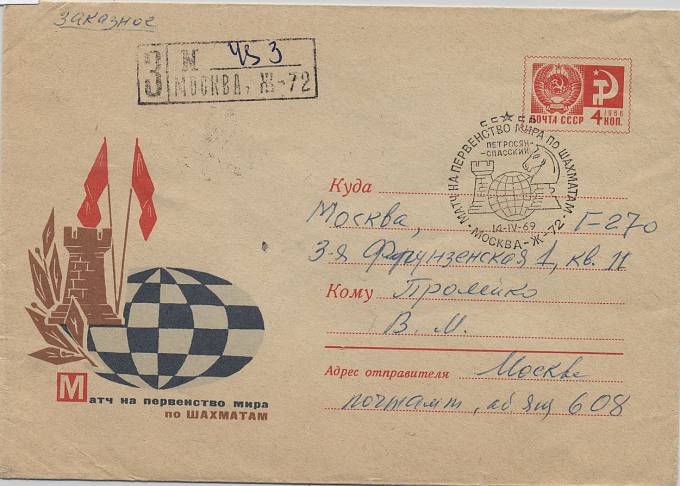 заказное
З
N 453
МОСКВА, Ж-72
ПОЧТА СССР
1966
4 КОП.
МАТЧ НА ПЕРВЕНСТВО МИРА ПО ШАХМАТАМ
ПЕТРОСЯН-
-СПАССКИЙ
14-IV-69
МОСКВА-Ж-72
Куда
Москва, Г-270
3-я Фрунзенская 1, кв. 11
Кому
В. М.
Адрес отправителя
Москва
почтамт, аб ящ 608
Матч на первенство мира
по ШАХМАТАМ